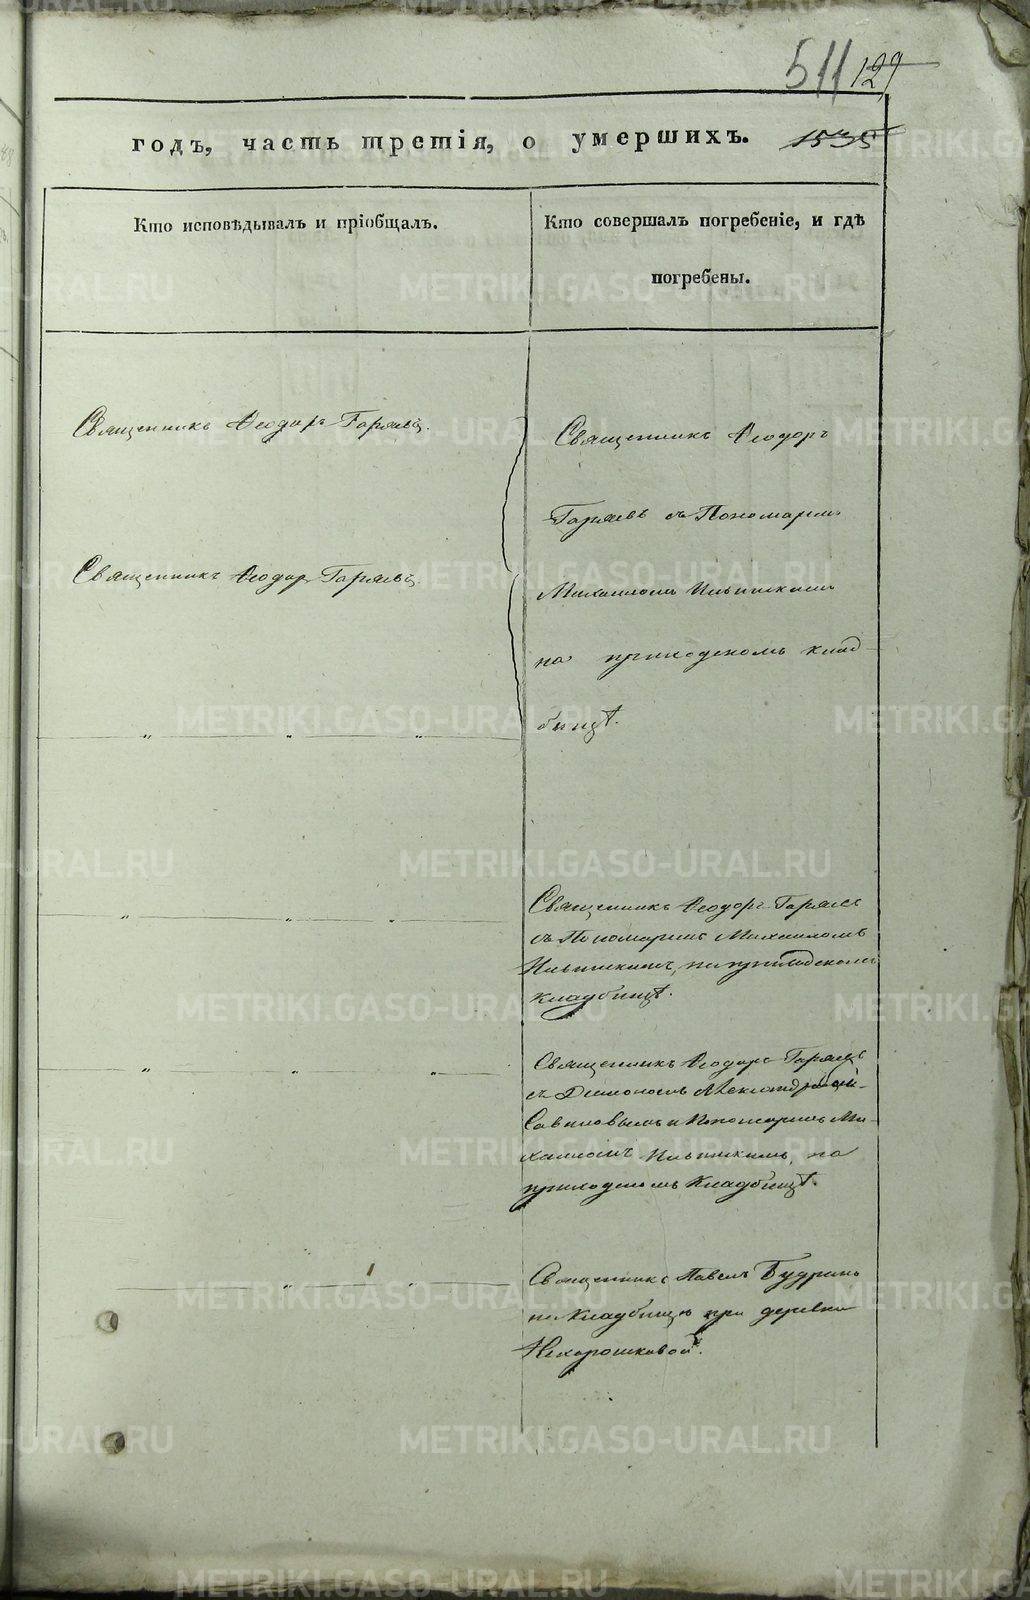 511 129
годъ, часть третія, о умершихъ. 1535
Кто исповѣдывалъ и пріобщалъ.
Кто совершалъ погребеніе, и гдѣ
погребены.
Священникъ Ѳеодоръ Гаряевъ.
Священникъ Ѳеодоръ Гаряевъ.
Священникъ Ѳеодоръ
Гаряевъ съ Пономаремъ
Михаиломъ Ильинскимъ
на приходскомъ клад-
бищѣ.
Священникъ Ѳеодоръ Гаряевъ
съ Пономаремъ Михаиломъ
Ильинскимъ, на приходскомъ
Кладбищѣ.
Священникъ Ѳеодоръ Гаряевъ
съ Діакономъ
Савиновымъ и Пономаремъ Ми-
хаиломъ Ильинскимъ, на
приходскомъ Кладбищѣ.
Священникъ Павелъ Будринъ
на Кладбищѣ при деревни
Нехорошковой.
METRIKI.GASO-URAL.RU